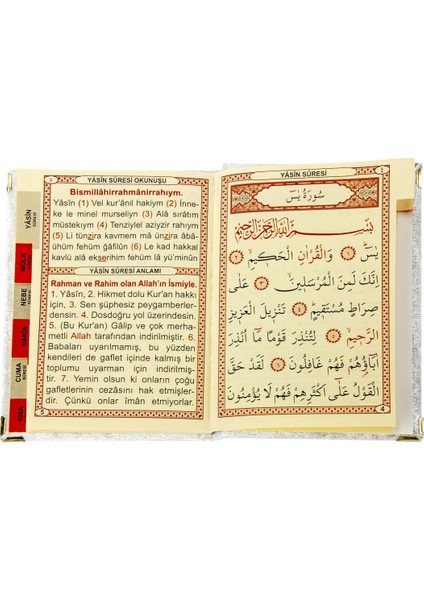 YÂSÎN SÛRESİ OKUNUŞU
Bismillâhirrahmânirrahıym.
Yâsîn (1) Vel kur'ânil hakiym (2) İnne-
ke le minel murseliyn (3) Alâ sırâtım
müstekıym (4) Tenziylel aziyzir rahıym
(5) Li tünzira kavmem mâ ünzira âbâ-
ühüm fehüm ğâfilûn (6) Le kad hakkal
kavlü alâ ekserihim fehüm lâ yü'minûn
YÂSÎN SÛRESİ ANLAMI
Rahman ve Rahim olan Allah'ın İsmiyle.
1. Yâsîn, 2. Hikmet dolu Kur'an hakkı
için, 3. Sen şüphesiz peygamberler-
densin. 4. Dosdoğru yol üzerindesin.
5. (Bu Kur'an) Gâlip ve çok merha-
metli Allah tarafından indirilmiştir. 6.
Babaları uyarılmamış, bu yüzden
kendileri de gaflet içinde kalmış bir
toplumu uyarman için indirilmiş-
tir. 7. Yemin olsun ki onların çoğu
gafletlerinin cezasını hak etmişler-
dir. Çünkü onlar îman etmiyorlar.
5
YÂSİN
MÜLK
NEBE
VÂKIA
CUMA
KISA
YÂSÎN SÛRESİ
سُورَةُ يٰسٓ
بِسْمِ اللّٰهِ الرَّحْمٰنِ الرَّحِيمِ
يٰسٓ ﴿١﴾ وَالْقُرْاٰنِ الْحَكِيمِ ﴿٢﴾
اِنَّكَ لَمِنَ الْمُرْسَلِينَ ﴿٣﴾ عَلٰى
صِرَاطٍ مُسْتَقِيمٍ ﴿٤﴾ تَنْزِيلَ الْعَزِيزِ
الرَّحِيمِ ﴿٥﴾ لِتُنْذِرَ قَوْمًا مَٓا اُنْذِرَ
اٰبَٓاؤُهُمْ فَهُمْ غَافِلُونَ ﴿٦﴾ لَقَدْ حَقَّ
الْقَوْلُ عَلٰٓى اَكْثَرِهِمْ فَهُمْ لَا يُؤْمِنُونَ
4